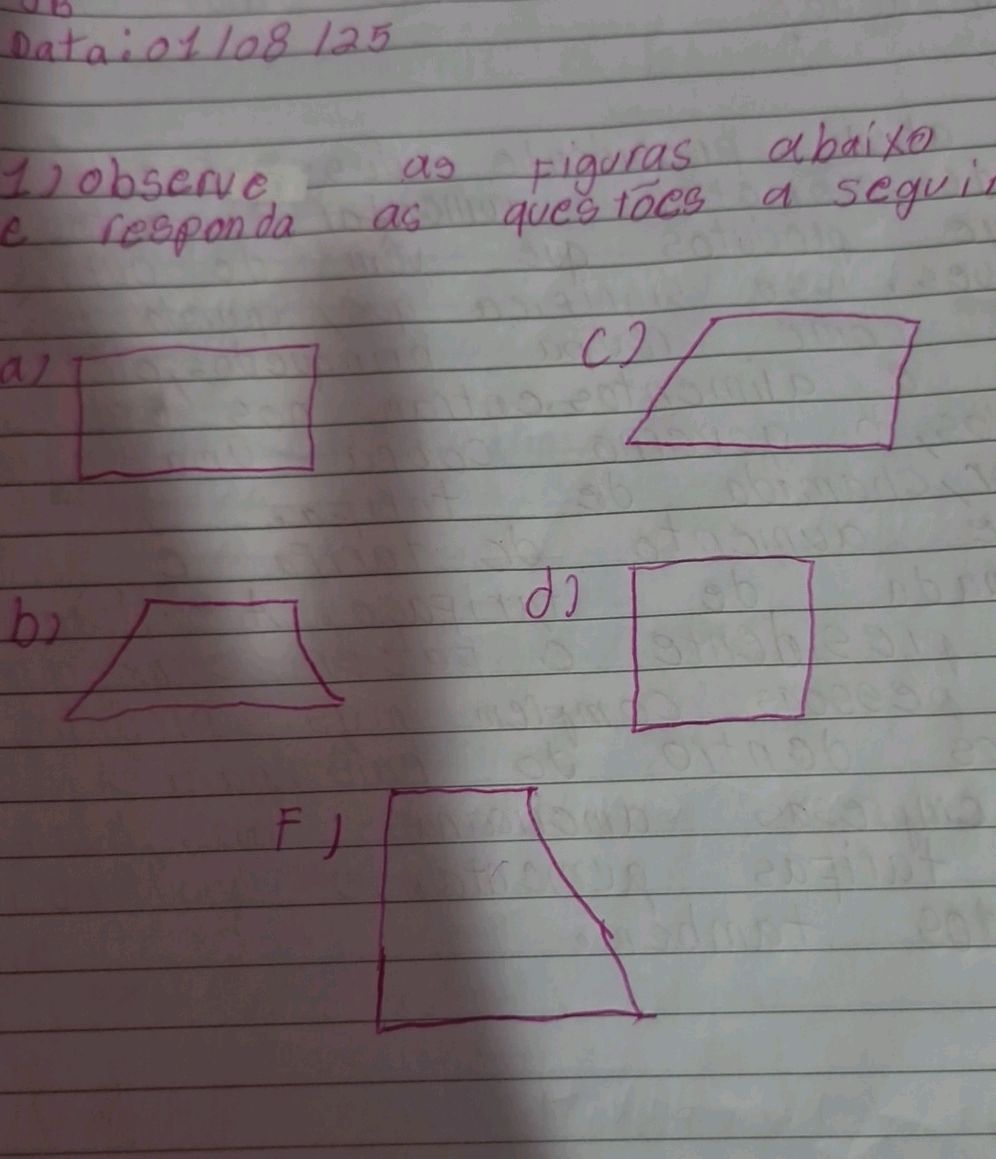 Data: 01/08/25
1) observe as Figuras abaixo
e responda as questões a seguir
a)
c)
b)
d)
F)